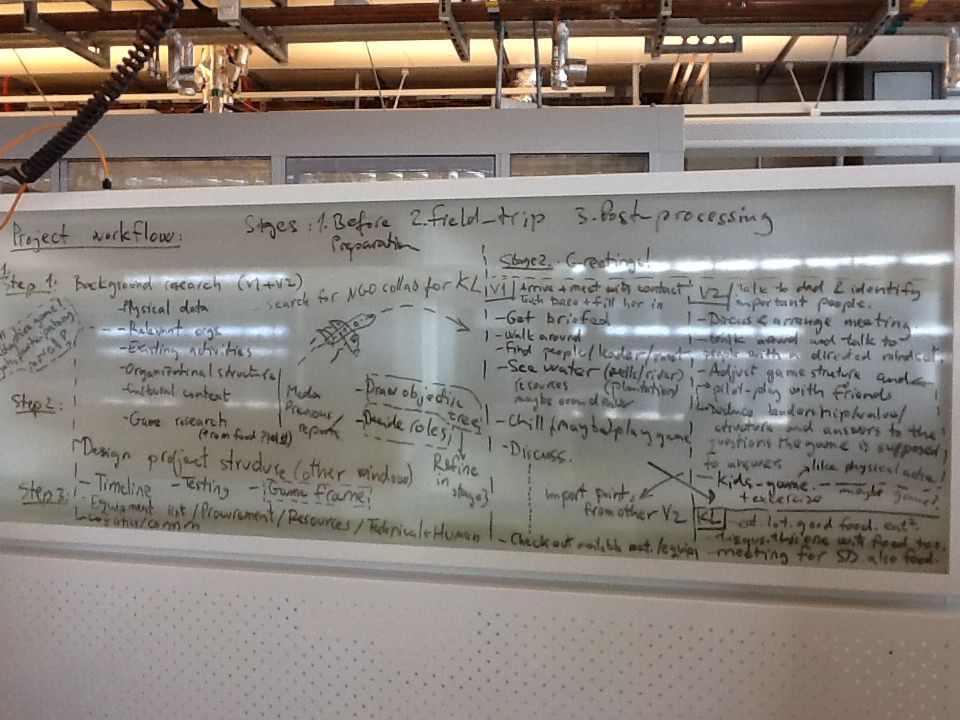 Project workflow:
Stages: 1. Before 2. field-trip 3. Post-processing
Preparation
Step 1: Background research (V1+V2)
search for NGO collab for KL
- Physical data
- Relevant orgs
- Existing activities
- Organizational structure
- Cultural context
- Game research
(from food
Media
Previous
reports
Step 2:
- Draw objective
tree
- Decide roles
Refine
in
stage 3
Design project structure (other window)
- Timeline - Testing - Game frame
Step 3:
- Equipment list/Procurement/Resources/Technical+Human
- Logistics/comm
Stage 2. Greetings!
V1 Arrive + meet with contact
Touch base + fill her in
- Get briefed
- Walk around
- Find people/leader/meet
- See water (wells/river)
resources (plantation)
maybe
- Chill/maybe play game
- Discuss.
import points
from other V2
- Check out available mat./equip
V2 Talk to dad & identify
important people.
- Discuss & arrange meeting.
- Walk around and talk to
people with a directed mindset
- Adjust game struture and
pilot-play with friends
- Deduce leadership/value/
structure and answers to the
questions the game is supposed
to answer
- Kids-game. like physical
+ exercise maybe game?
KL - eat. lot. good food. eat².
this one with food too.
- meeting for SD. also food.